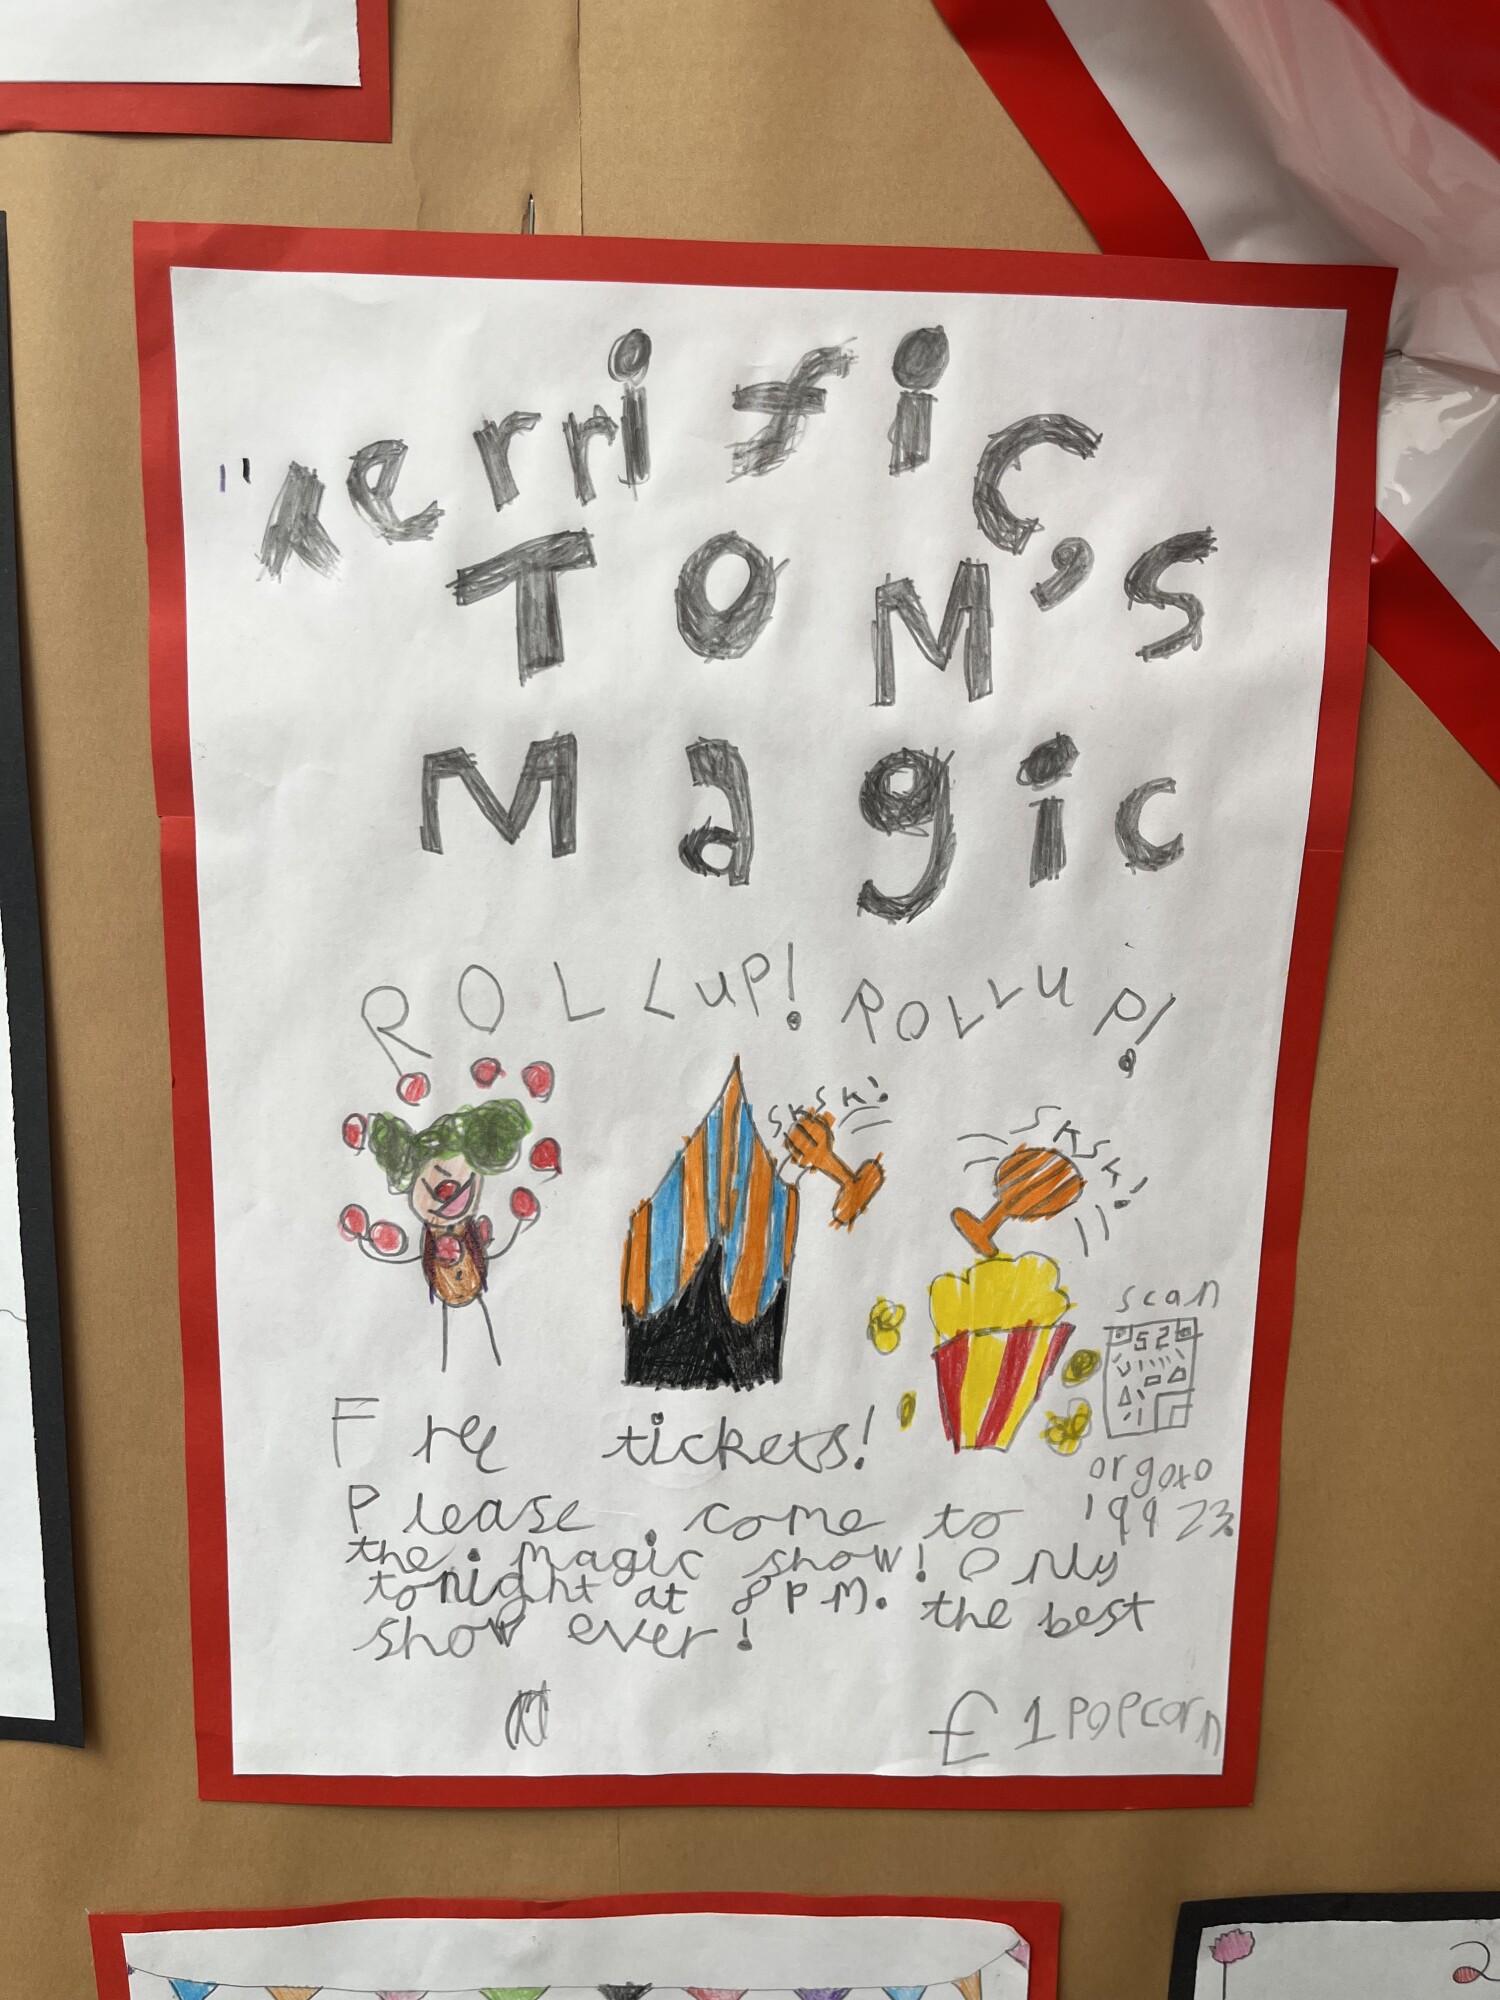 "Terrific
TOM's
Magic
ROLL UP! ROLL UP!
SKSK!
SKSK!
scan
52
Free tickets!
or go to
19923.
Please come to
the magic show! Only
tonight at 8PM. the best
show ever!
£1 Popcorn
2